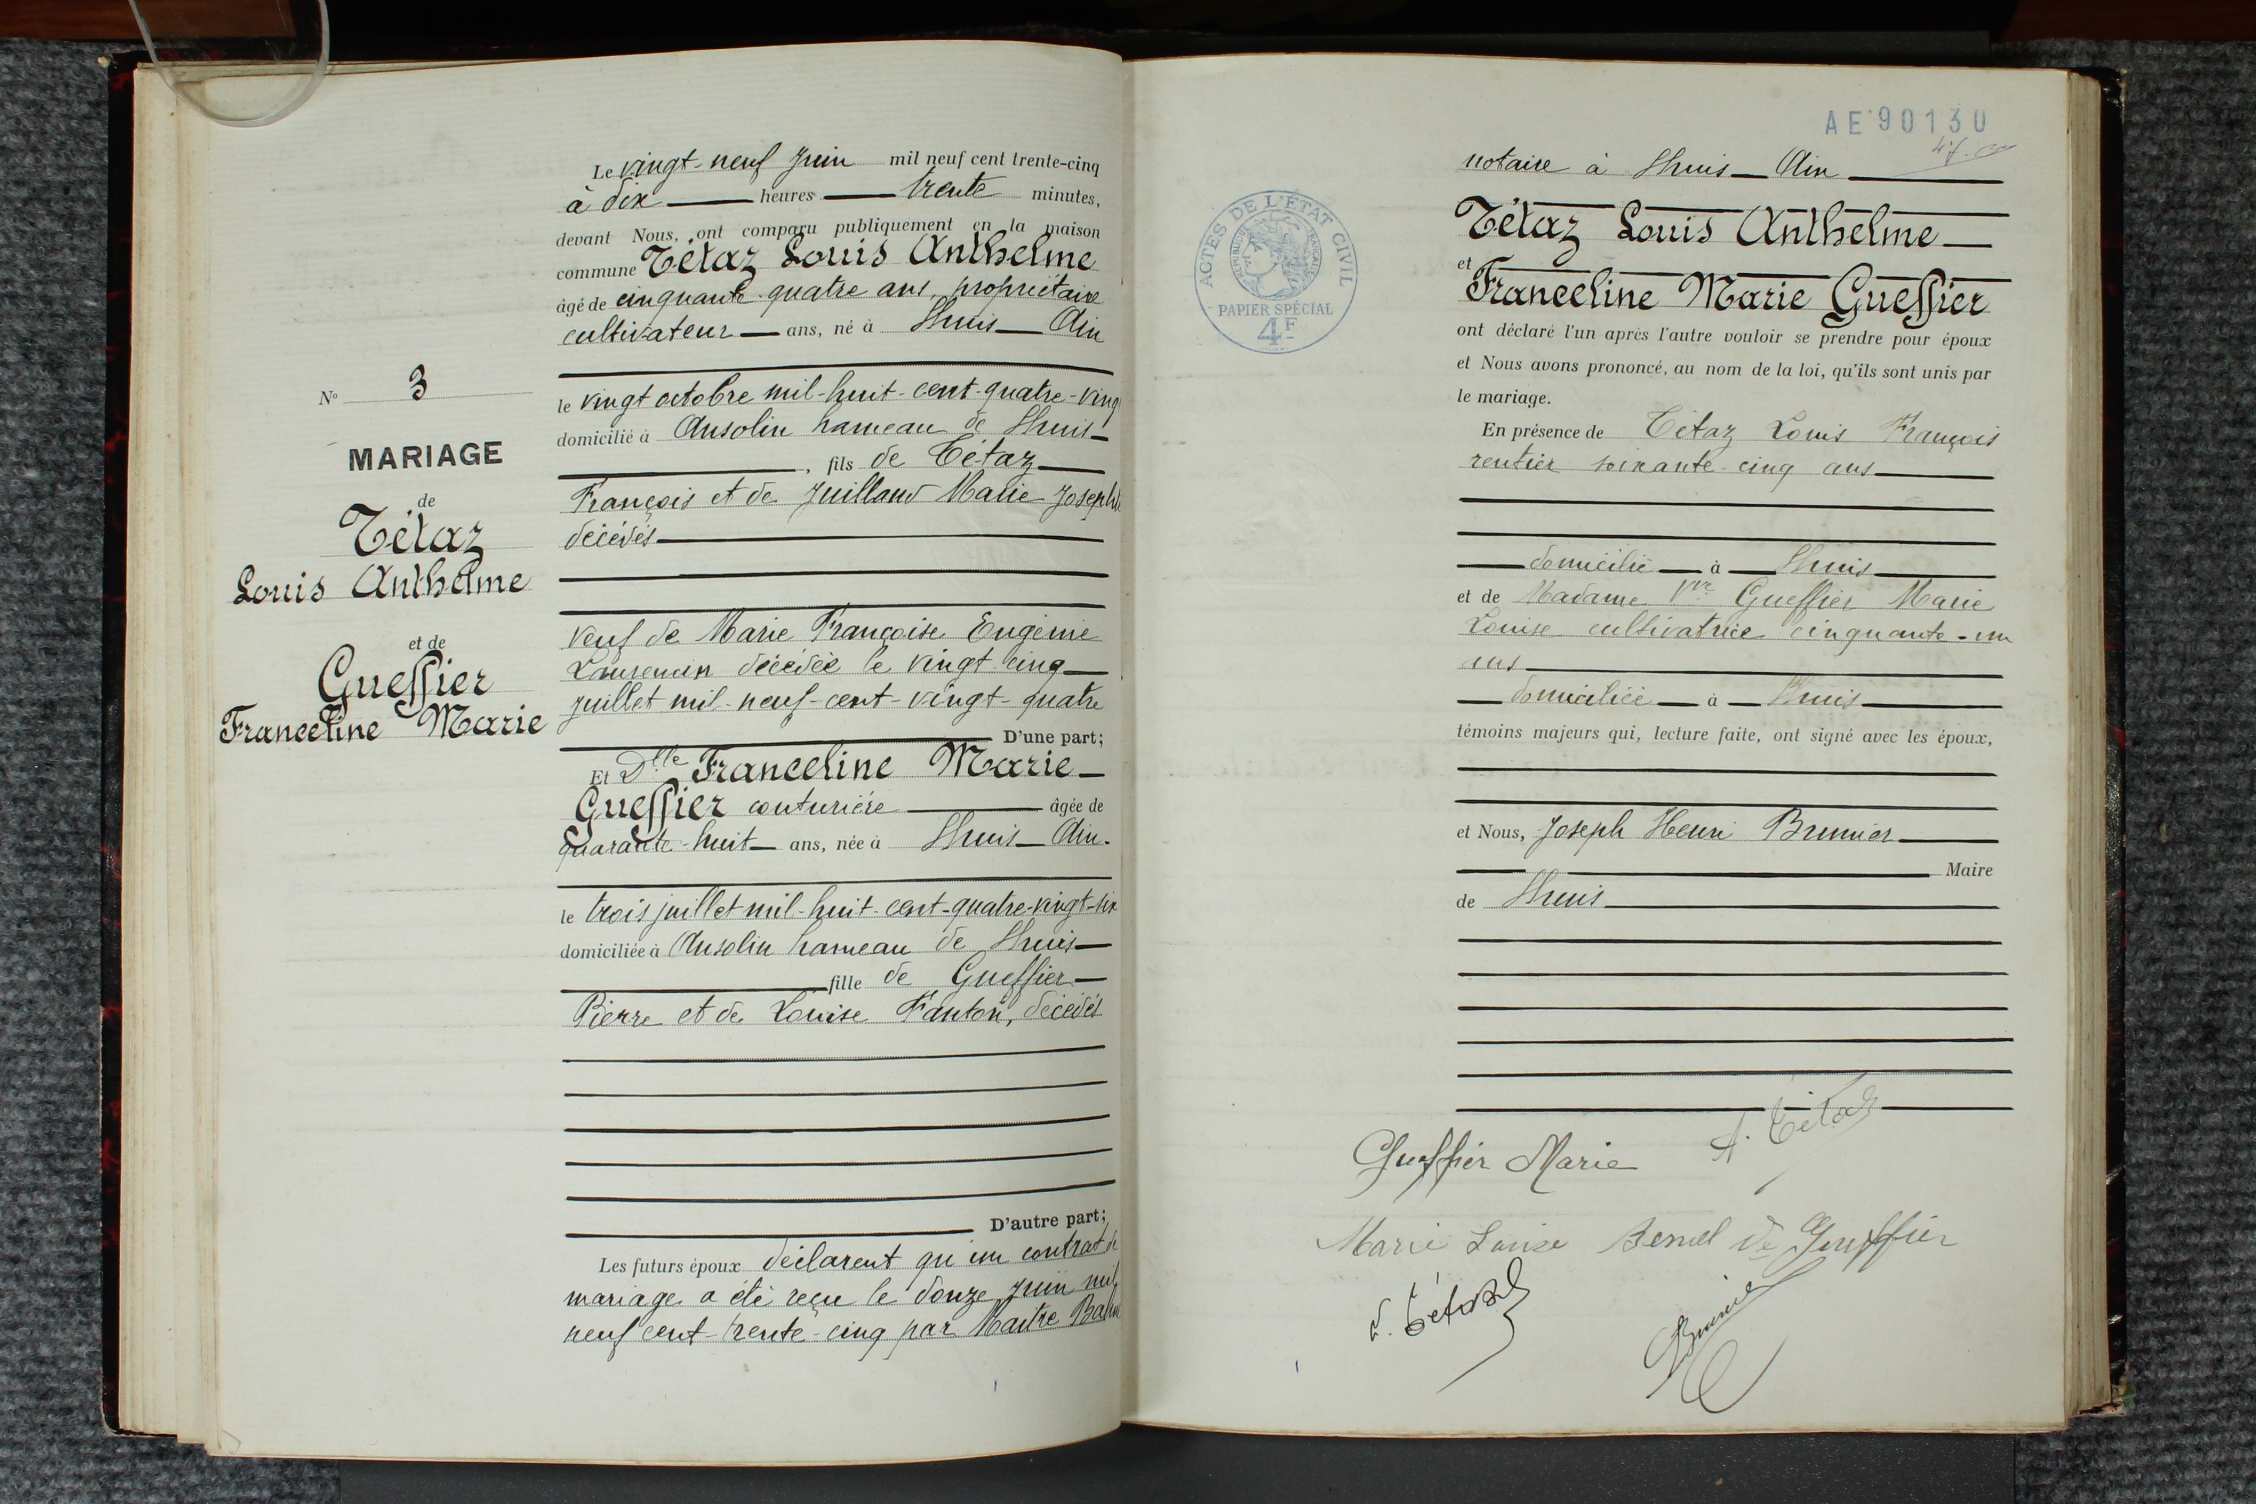 Le vingt-neuf Juin mil neuf cent trente-cinq
à dix heures trente minutes,
devant Nous, ont comparu publiquement en la maison
commune Tétaz Louis Anthelme
âgé de cinquante-quatre ans, propriétaire
cultivateur ans, né à Lhuis Ain
le vingt octobre mil-huit-cent-quatre-vingt
domicilié à Ansolin hameau de Lhuis
, fils de Tétaz
François et de Juilland Marie Josephte
décédés
veuf de Marie Françoise Eugénie
décédée le vingt-cinq
juillet mil-neuf-cent-vingt-quatre
D'une part;
Et Dlle Franceline Marie
Gueffier couturière âgée de
quarante-huit ans, née à Lhuis Ain.
le trois juillet mil-huit-cent-quatre-vingt-six
domiciliée à Ansolin hameau de Lhuis
fille de Gueffier
Pierre et de Louise Fanton, décédés
D'autre part;
Les futurs époux déclarent qu'un contrat de
mariage a été reçu le douze juin mil
neuf cent-trente-cinq par Maître
No 3
MARIAGE
de
Tétaz
Louis Anthelme
et de
Gueffier
Franceline Marie
AE 90130
notaire à Lhuis Ain
Tétaz Louis Anthelme
et
Franceline Marie Gueffier
ont déclaré l'un après l'autre vouloir se prendre pour époux
et Nous avons prononcé, au nom de la loi, qu'ils sont unis par
le mariage.
En présence de Tétaz Louis François
rentier soixante-cinq ans
domicilié à Lhuis
et de Madame Vve Gueffier Marie
Louise cultivatrice cinquante-un
ans
domiciliée à Lhuis
témoins majeurs qui, lecture faite, ont signé avec les époux,
et Nous, Joseph Henri Brunier
Maire
de Lhuis
ACTES DE L'ÉTAT CIVIL
RÉPUBLIQUE FRANÇAISE
PAPIER SPÉCIAL
4F
Gueffier Marie A. Tétaz
Marie Louise Vve Gueffier
L. Tétaz
Brunier